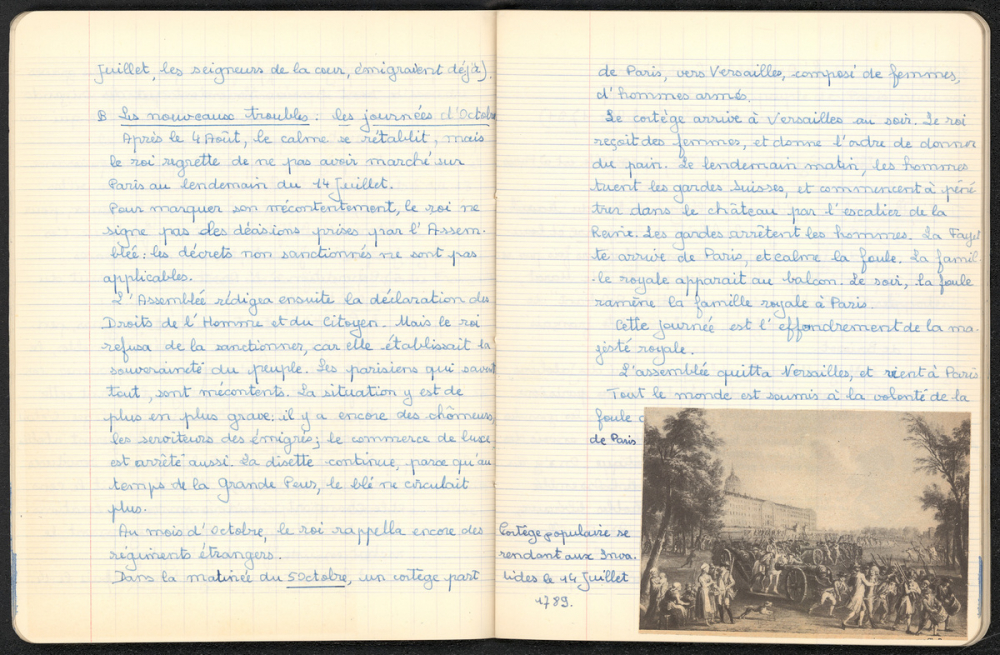 Juillet, les seigneurs de la cour, émigraient déjà).
B Les nouveaux troubles : les journées d'Octobre
Après le 4 Août, le calme se rétablit, mais
le roi regrette de ne pas avoir marché sur
Paris au lendemain du 14 Juillet.
Pour marquer son mécontentement, le roi ne
signe pas les décisions prises par l'Assem-
blée : les décrets non sanctionnés ne sont pas
applicables.
L'Assemblée rédigea ensuite la déclaration des
Droits de l'Homme et du Citoyen. Mais le roi
refusa de la sanctionner, car elle établissait la
souveraineté du peuple. Les parisiens qui savent
tout, sont mécontents. La situation y est de
plus en plus grave : il y a encore des chômeurs,
les serviteurs des émigrés ; le commerce de luxe
est arrêté aussi. La disette continue, parce qu'au
temps de la Grande Peur, le blé ne circulait
plus.
Au mois d'Octobre, le roi rappella encore des
régiments étrangers.
Dans la matinée du 5 Octobre, un cortège part
de Paris, vers Versailles, composé de femmes,
d'hommes armés.
Le cortège arrive à Versailles au soir. Le roi
reçoit des femmes, et donne l'ordre de donner
du pain. Le lendemain matin, les hommes
tuent les gardes Suisses, et commencent à péné
trer dans le château par l'escalier de la
Reine. Les gardes arrêtent les hommes. La Fayet
te arrive de Paris, et calme la foule. La famil
le royale apparait au balcon. Le soir, la foule
ramène la famille royale à Paris.
Cette journée est l'effondrement de la ma-
jesté royale.
L'assemblée quitta Versailles, et vient à Paris
Tout le monde est soumis à la volonté de la
foule
de Paris
Cortège populaire se
rendant aux Inva-
lides le 14 Juillet
1789.